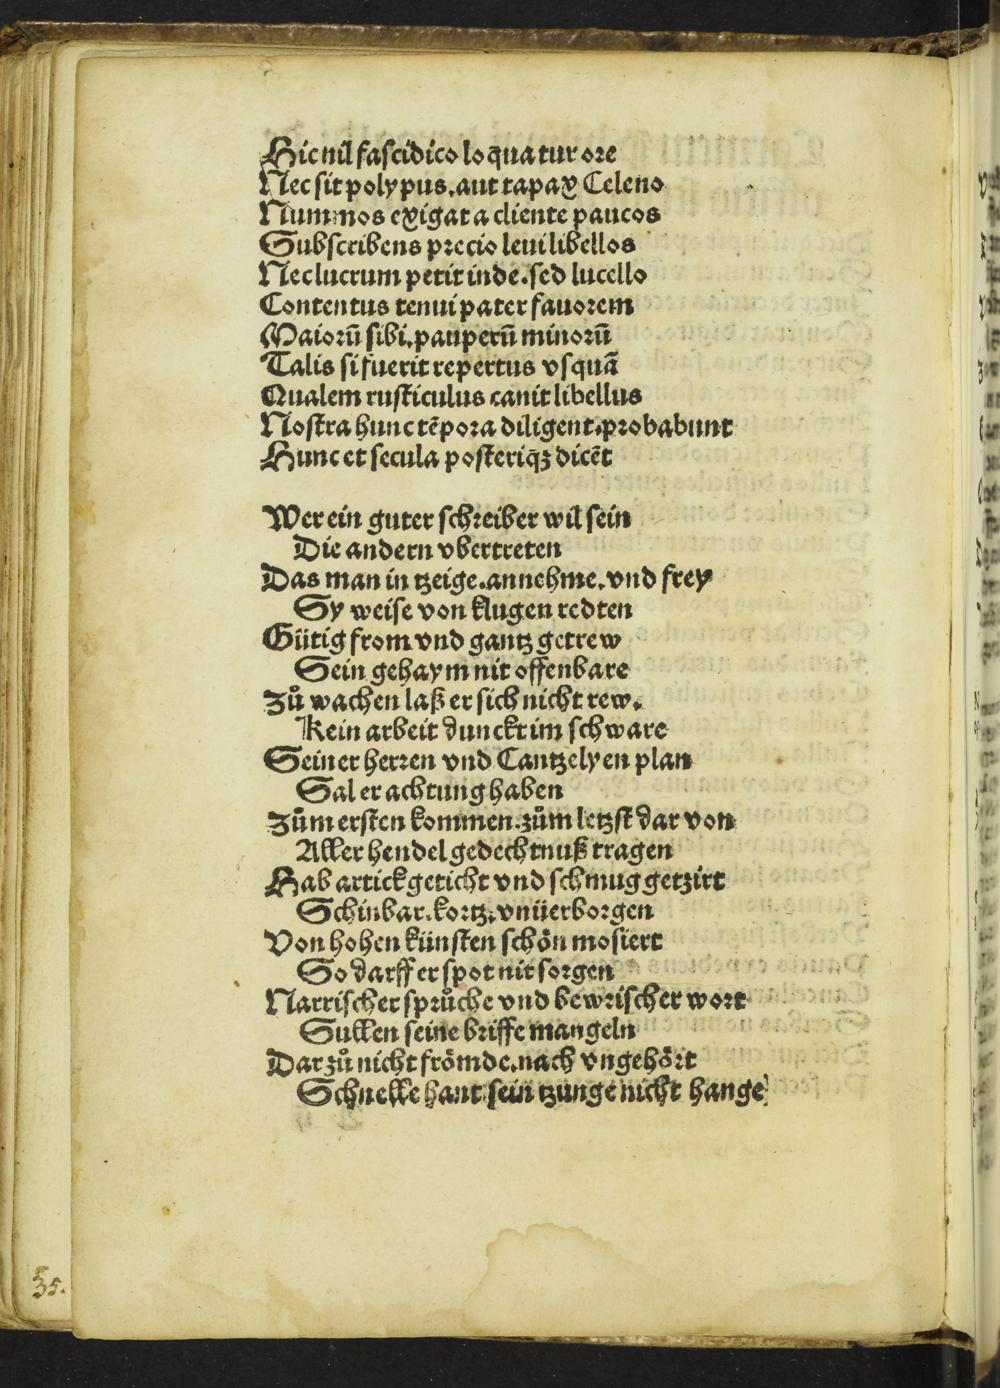 Hic nil fascidico loquatur ore
Nec sit polypus. aut rapax Celeno
Nummos exigat a cliente paucos
Subscribens precio leui libellos
Nec lucrum petit inde. sed lucello
Contentus tenui pater fauorem
Maiorū sibi. pauperū minorū
Talis si fuerit repertus vsquā
Qualem rusticulus canit libellus
Nostra hunc tēpora diligent. probabunt
Hunc et secula posteriq̃ꝫ dicēt
Wer ein guter schreiber wil sein
Die andern vbertreten
Das man in tzeige. annehme. vnd frey
Sy weise von klugen redten
Gütig from vnd gantz getrew
Sein gehaym nit offenbare
Zů wachen laß er sich nicht rew.
Kein arbeit dunckt im schware
Seiner herren vnd Cantzelyen plan
Sal er achtung haben
Zům ersten kommen. zům letzst dar von
Aller hendel gedechtnuß tragen
Hab artick geticht vnd schmug getzirt
Schinbar. kortz. vnüerborgen
Von hohen künsten schön mosiert
So darff er spot nit sorgen
Narrischer sprůche vnd bewrischer wort
Sullen seine briffe mangeln
Dar zů nicht frömde. nach vngehört
Schnelle hant sein tzunge nicht hange
35.